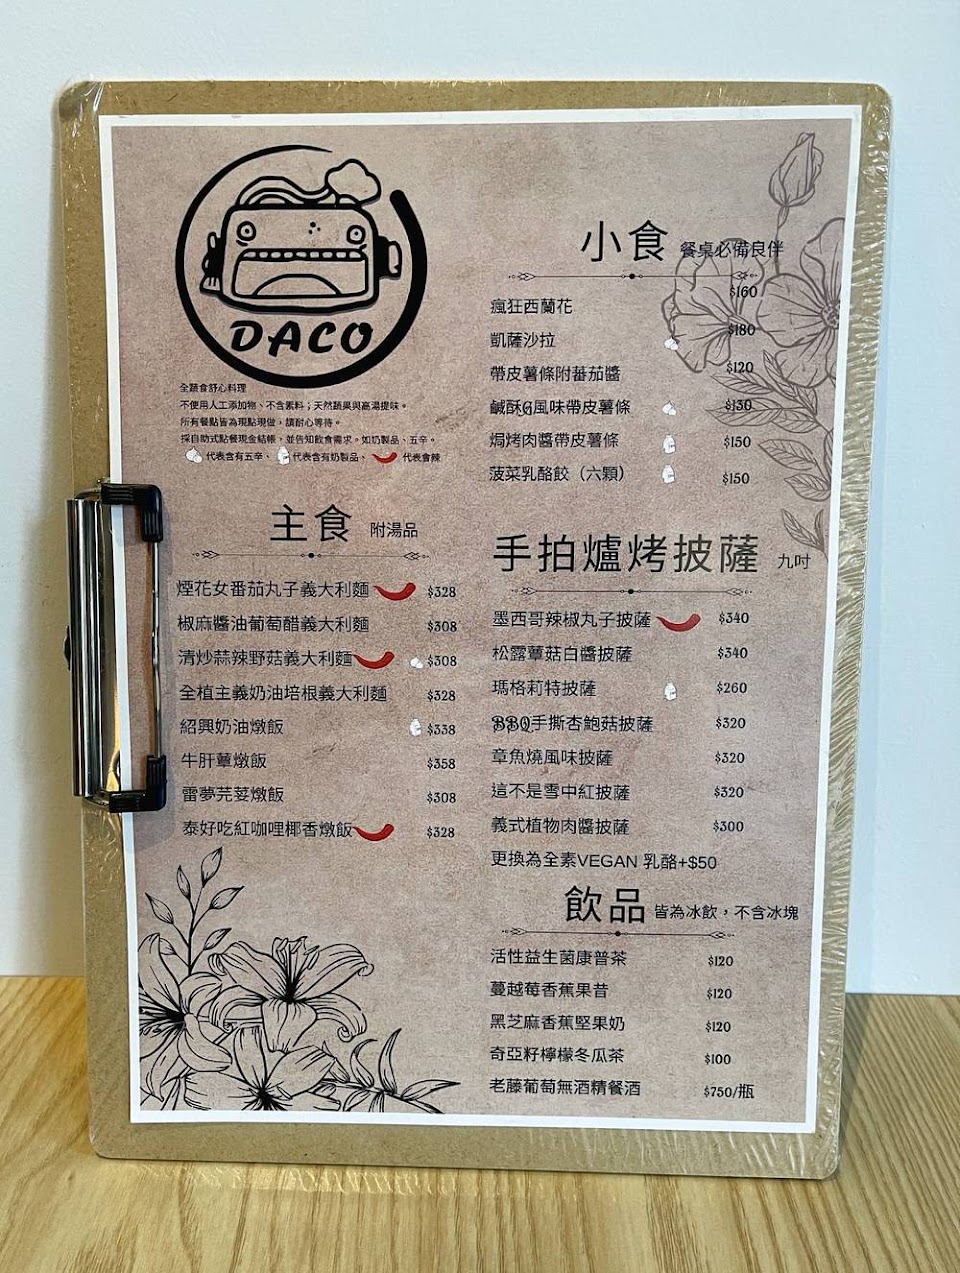 DACO
全蔬食舒心料理
不使用人工添加物、不含素料；天然蔬果與高湯提味。
所有餐點皆為現點現做，請耐心等待。
採自助式點餐現金結帳，並告知飲食需求。如奶製品、五辛。
代表含有五辛、 代表含有奶製品、 代表會辣
主食 附湯品
煙花女番茄丸子義大利麵 $328
椒麻醬油葡萄醋義大利麵 $308
清炒蒜辣野菇義大利麵 $308
全植主義奶油培根義大利麵 $328
紹興奶油燉飯 $338
牛肝蕈燉飯 $358
雷夢芫荽燉飯 $308
泰好吃紅咖哩椰香燉飯 $328
小食 餐桌必備良伴
瘋狂西蘭花 $160
凱薩沙拉 $180
帶皮薯條附蕃茄醬 $120
鹹酥G風味帶皮薯條 $130
焗烤肉醬帶皮薯條 $150
菠菜乳酪餃（六顆） $150
手拍爐烤披薩 九吋
墨西哥辣椒丸子披薩 $340
松露蕈菇白醬披薩 $340
瑪格莉特披薩 $260
BBQ手撕杏鮑菇披薩 $320
章魚燒風味披薩 $320
這不是雪中紅披薩 $320
義式植物肉醬披薩 $300
更換為全素VEGAN 乳酪+$50
飲品 皆為冰飲，不含冰塊
活性益生菌康普茶 $120
蔓越莓香蕉果昔 $120
黑芝麻香蕉堅果奶 $120
奇亞籽檸檬冬瓜茶 $100
老藤葡萄無酒精餐酒 $750/瓶